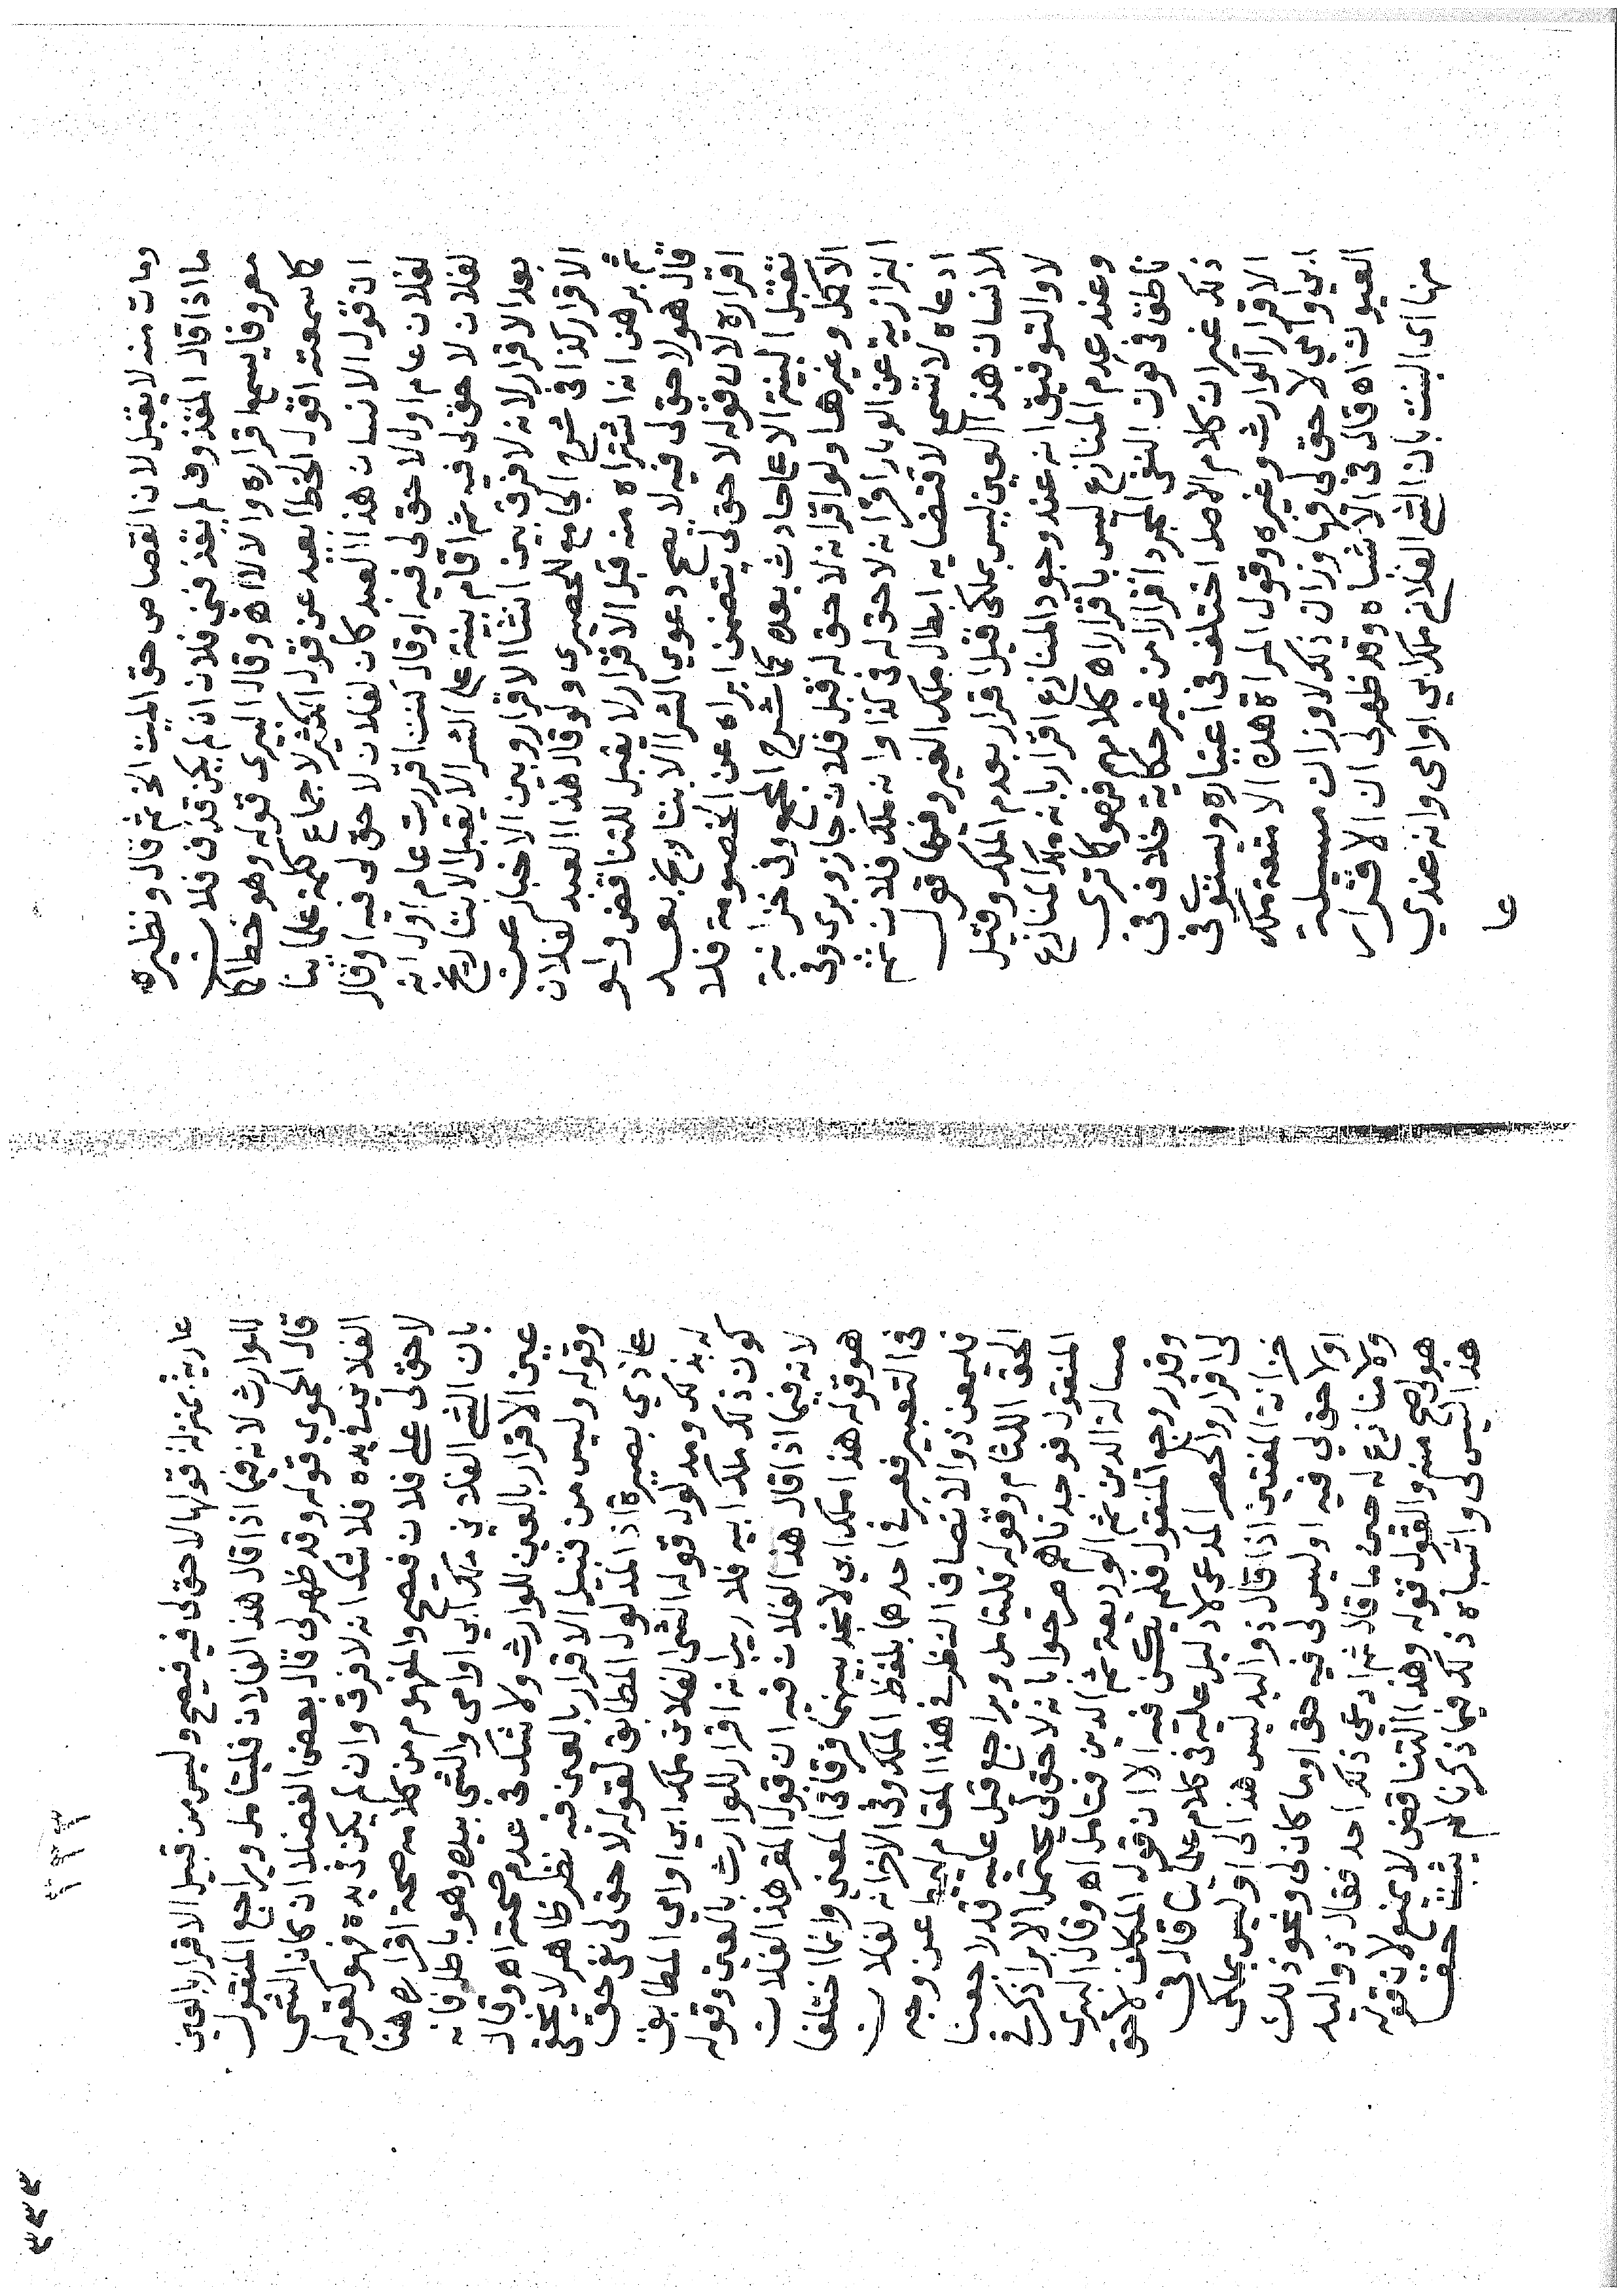 ومات منه لا يقبل لان القصاص حق الميت الخ ثم قال ونظيره
ما اذا قال المقذوف لم يقذفني فلان ان لم يكن قذف فلان
معروفا يسمع اقراره والا لا اه وقال البيري قوله وهو خطا كا
كما سمعته اقول الخطا بعيد عن قول الكثير لاجماع كلمة علماينا
ان قول الانسان هذا العبد كان لفلان لا حق لي فيه اوقال
لفلان عام اول لا حق لي فيه اوقال كنت اقررت عام اول انه
لفلان لا حق لي فيه ثم اقام بينة على الشرا لا يقبل الا بتاريخ
بعد الاقرار لانه لا فرق بين انشا الاقرار وبين الاخبار عن
الاقرار كذا في شرح الجامع للحصيري ولو قال هذا العبد لفلان
ثم برهن انه اشتراه منه قبل الاقرار لا يقبل للتناقض ولو
قال هو لا حق لي فيه لا يصح دعوي الشرا الا بتاريخ بعد
اقراره لان قوله لا حق لي يتضمن ابراه عن الخصومة فلا
تقبل البينة الا على حادث بعده كما شرح المجمع وفي خزانة
الاكمل وغيرها ولو اقر انه لا حق له قبل فلان جاز وبري وفي
البزازية عن الوبار اقر انه لا حق له في كذا وانه ملك فلان ثم
ادعاه لا تسمع لاقتضايه ابطال ملك الغير وفيها قول
الانسان هذا العين ليس بملكي قيل اقرار بعدم الملك وقيل
لا والتوفيق انه عند وجود المنازع اقرار بانه ملك المنازع
وعند عدم المنازع ليس باقرار اه كلامهم فهو كما ترى
ناطق في كون النفي المجرد اقرارا من غير حكاية خلاف في
ذلك غير ان كلام الاصل اختلف في اعتباره ويستوي في
الاقرار الوارث وغيره وقول المراة هذه الامتعة ملك
ابي او امي لا حق لي فيها وزان ذلك لا وزان مسيلة
العيون اه قال في الاشباه وقد ظهر لي ان الاقرار
منها اى البنت بان الشي الفلاني ملك ابي او امي وانه عندي
عا
عارية بمنزلة قولها لا حق لي فيه فيصح وليس من قبيل الاقرار بالعين
للوارث لانه فيما اذا قال هذا لفلان فليتامل ويراجع المنقول
قال الحموي قوله وقد ظهر لي قال بعض الفضلا ان كان الشي
الفلاني في يده فلا شك انه لا فرق وان لم يكن في يده فهو كقوله
لا حق لي على فلان فيصح والمفهوم من كلامه صحة اقراره هنا
بان الشي الفلاني ملك ابي او امي والشي بيده وهو باطل فانه
عين الاقرار بالعين للوارث ولا شك في عدم صحته اه وقال
وقوله وليس من قبيل الاقرار بالعين فيه نظر ظاهر لا يخفى
على ذي بصيرة اذ المدلول المطابق لقوله لا حق لي نفي حق
له بذلك ومدلول قوله الشي الفلاني ملك ابي او امي المطابق
كون ذلك ملك ابيه فلا ريب انه اقرار للوارث بالعين وقوله
لانه فيما اذا قال هذا لفلان فيه ان قول المقر هذا لفلان
هو قوله هذا ملك ابي لا نجد بينهما فرقا في المعنى وانما اختلفا
في التعبير فعبر في احدهما بلفظ الملك وفي الاخر انه لفلان
فليمعن ذو الانصاف النظر في هذا المقام ليميط عن وجه
الحق اللثام وقوله فليتامل ويراجع قبل عليه قد راجعنا
المنقول فوجدناهم صرحوا بانه لا حق لي يحتمل الابرا ذكره في
مسالة الدين ثم الوديعة ثم الدين فتامل اه وقال البيري
وقد روجع المنقول فلم يكن فيه الا ان قول المكلف لا حق
لي اقرار والحصر المدعى لا دليل عليه في كلام علماينا قال في
خزانة المفتين اذا قال ذو اليد ليس هذا لي او ليس بملكي
اولا حق لي فيه او ليس لي فيه حق او ما كان لي ونحو ذلك
ولا منازع له حين ما قال ثم ادعى ذلك احد فقال ذو اليد
هو لي صح منه والقول قوله وهذا التناقض لا يمنع لان قوله
هذا ليس لي واشباه ذلك فيما ذكرنا لم يثبت حقا